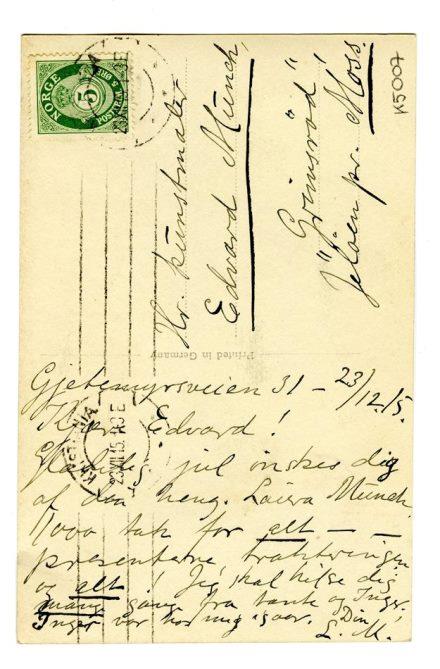 NORGE
5
5 ØRE
POSTFRIM
K5007
Hr. Kunstmaler
Edvard Munch,
"Grimsrød"
Jeløen pr. Moss.
Printed in Germany
KRISTIANIA
23 XII 15
Gjetemyrsveien 31 - 23/12.15.
Kjære Edvard!
Glædelig jul ønskes dig
af din heng. Laura Munch,
1000 tak for alt - -
presenterne, trakteringen
og alt! Jeg skal hilse dig
mange gange fra tante og Inger.
Inger var hos mig igaar. Din
L. M.